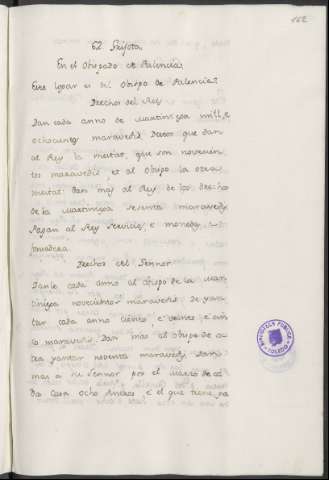 162
62 Grijota
En el Obispado de Palencia.
Este logar es del Obispo de Palencia.
Derechos del Rey
Dan cada anno de martiniega mill, e
ochocientos maravedis Destos que dan
al Rey la meitat, que son novecien
tos maravedis, et al Obispo la otra
meitat: dan mas al Rey de los derechos
de la martiniega sesenta maravedis
Pagan al Rey Servicios, e moneda,
Derechos del Sennor
Danle cada anno al obispo de la mar
tiniega novecientos maravedis de yan
tar cada anno ciento, e veinte, e cin
co maravedis. Dan mas al Obispo de
yantar noventa maravedis, dan
mas a su Sennor por el marzo de ca
da Casa ocho dineros, e el que tiene
BIBLIOTECA PUBLICA
TOLEDO